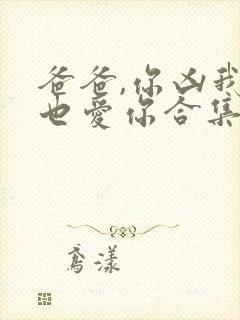 爸爸,你凶我
也爱你合集
鸢漾